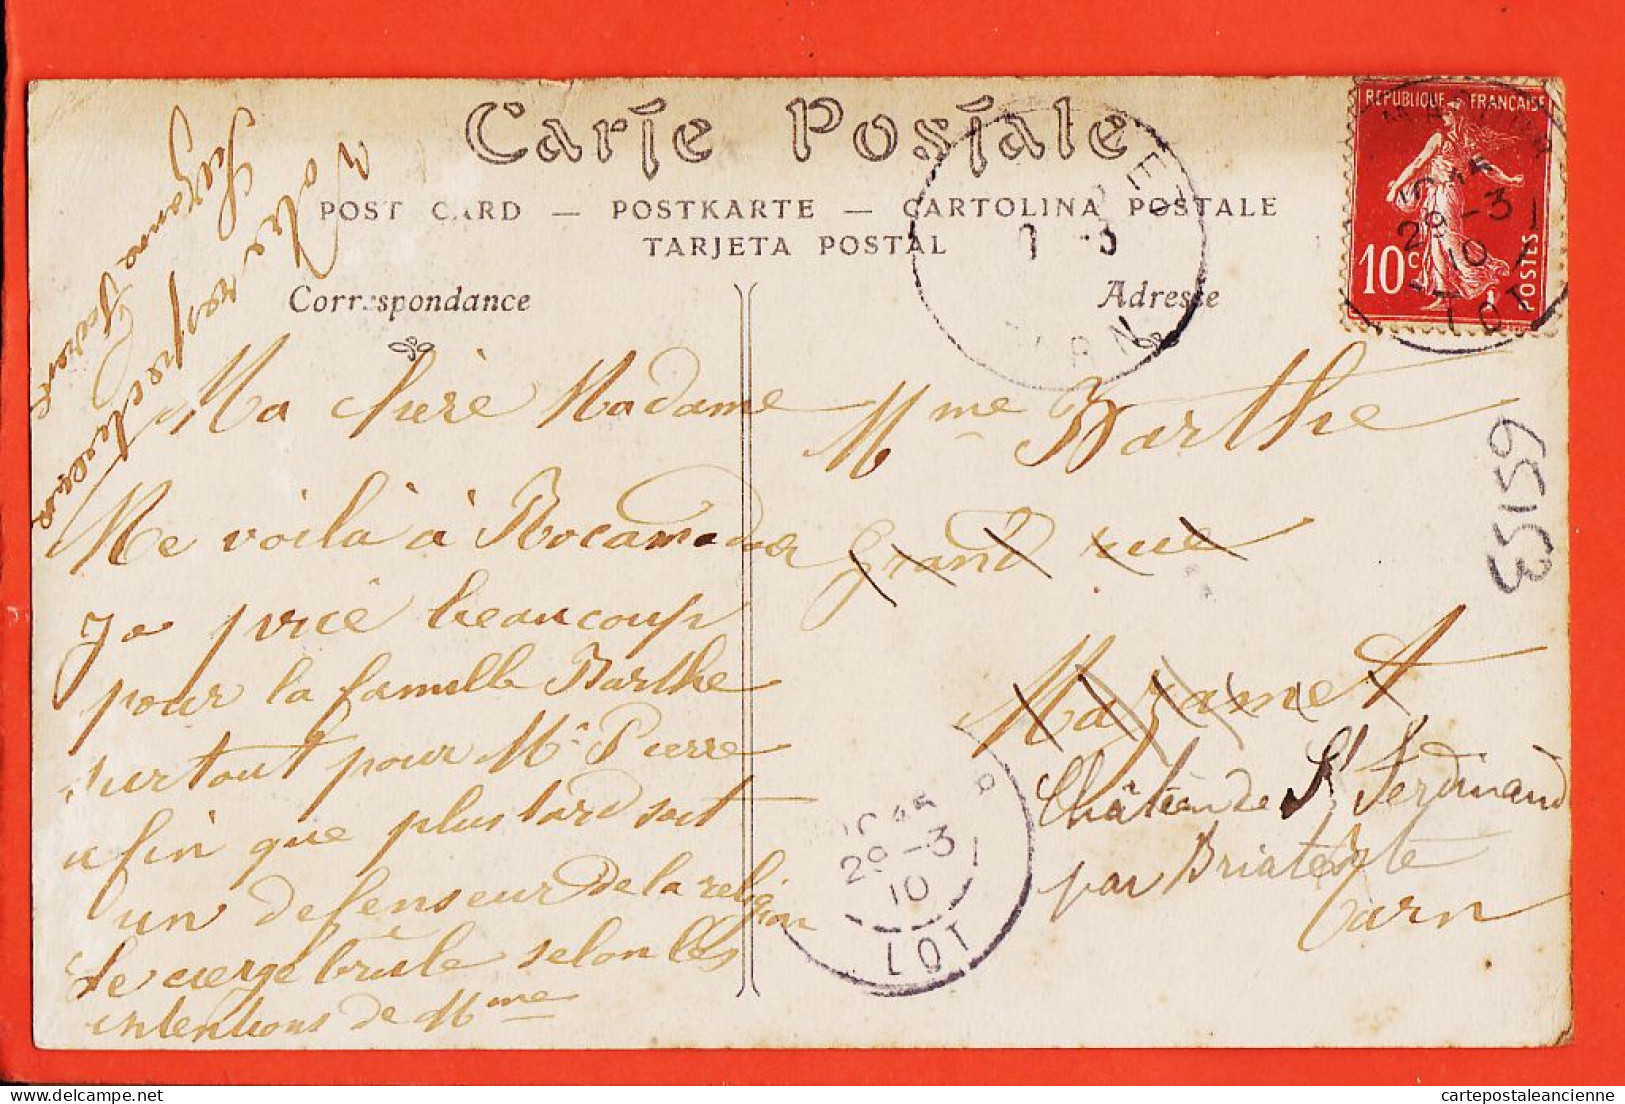 Carte Postale
POST CARD — POSTKARTE — CARTOLINA POSTALE
TARJETA POSTAL
Correspondance
Adresse
REPUBLIQUE FRANÇAISE
10c
POSTES
10 15
29 - 3
10
LOT
Ma chère Madame
Me voilà à Rocamadour
Ja prié beaucoup
pour la famille Barthe
surtout pour Mr Pierre
afin que plus tard soit
un defenseur de la religion
Le cierge brûle selon les
intentions de Mme
Votre respectueuse
Suzanna
Mme Barthe
Grand rue
Mazamet
Château de St Ferdinand
par Briatexte
Tarn
10 15
29 - 3
10
LOT
53159
cartepostaleancienne